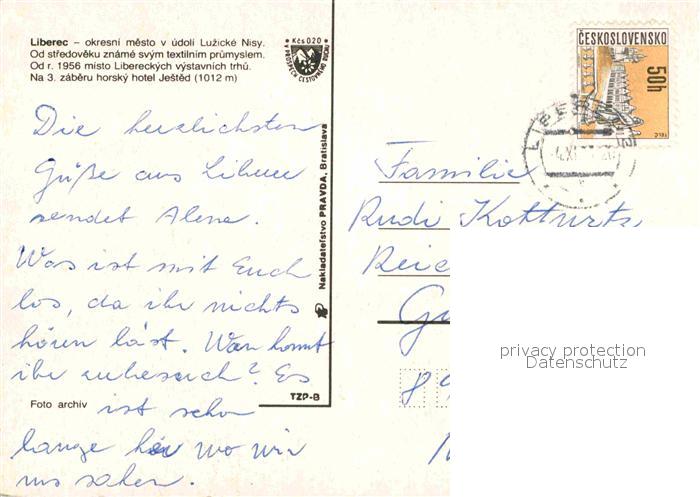 Liberec – okresní město v údolí Lužické Nisy.
Od středověku známé svým textilním průmyslem.
Od r. 1956 místo Libereckých výstavních trhů.
Na 3. záběru horský hotel Ještěd (1012 m)
Kčs 0,20
V PROSPĚCH CESTOVNÍHO RUCHU
ČESKOSLOVENSKO
50h
Die herzlichsten
Grüße aus Liberec
sendet Alena.
Was ist mit Euch
los, da ihr nichts
hören läst. Wan kommt
ihr zu besuch? Es
ist schon
lange her wo wir
uns sahen.
Foto archív
TZP-B
Nakladateľstvo PRAVDA, Bratislava
Familie
Rudi
Reic
Gu
8
privacy protection
Datenschutz